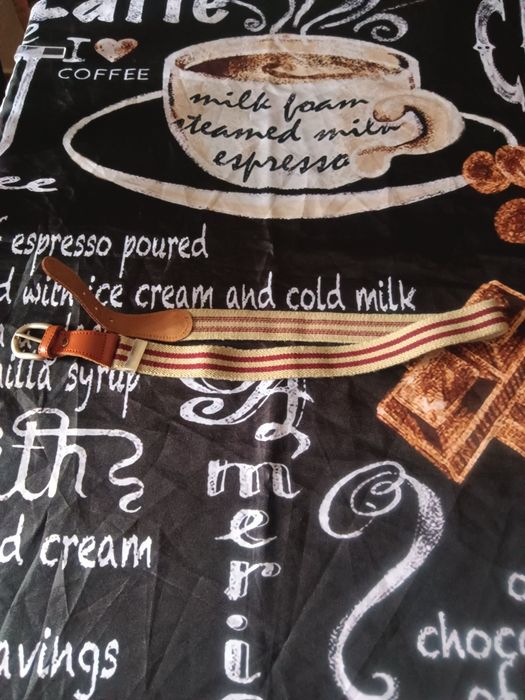 Latte
I
COFFEE
milk foam
steamed milk
espresso
ee
f espresso poured
d with ice cream and cold milk
nilla syrup
th
d cream
Ameri
avings
choc